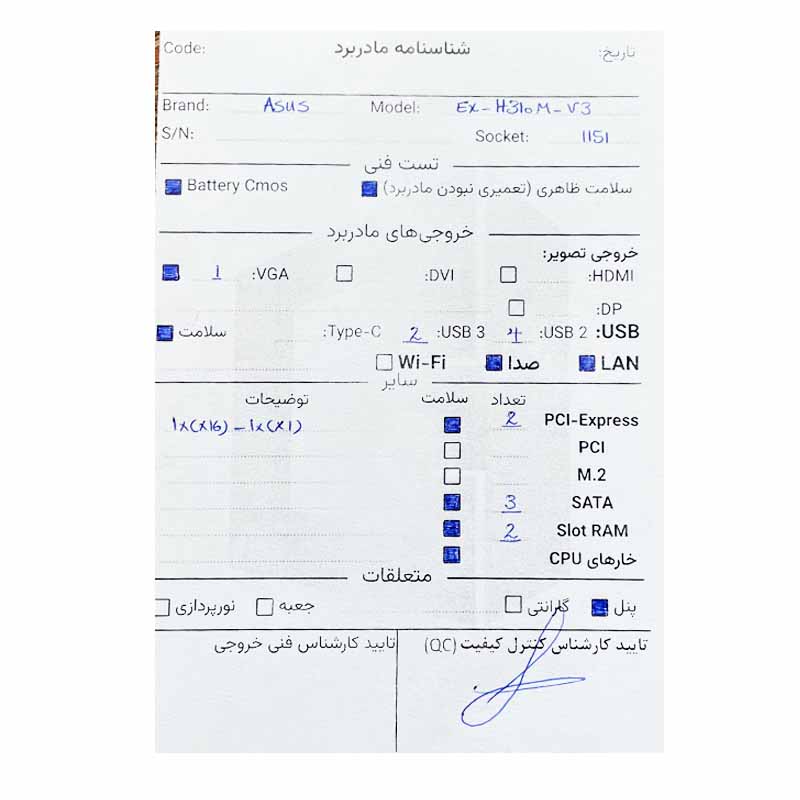 Code: شناسنامه مادربرد تاریخ:
Brand: ASUS Model: EX-H310M-V3
S/N: Socket: 1151
تست فنی
سلامت ظاهری (تعمیری نبودن مادربرد) Battery Cmos
خروجی‌های مادربرد
خروجی تصویر:
HDMI: DVI: VGA: 1
DP:
USB: USB 2: 4 USB 3: 2 Type-C: سلامت
LAN صدا Wi-Fi
سایر
تعداد سلامت توضیحات
PCI-Express 2 1x(x16) - 1x(x1)
PCI
M.2
SATA 3
Slot RAM 2
خارهای CPU
متعلقات
پنل گارانتی جعبه نورپردازی
تایید کارشناس کنترل کیفیت (QC) تایید کارشناس فنی خروجی